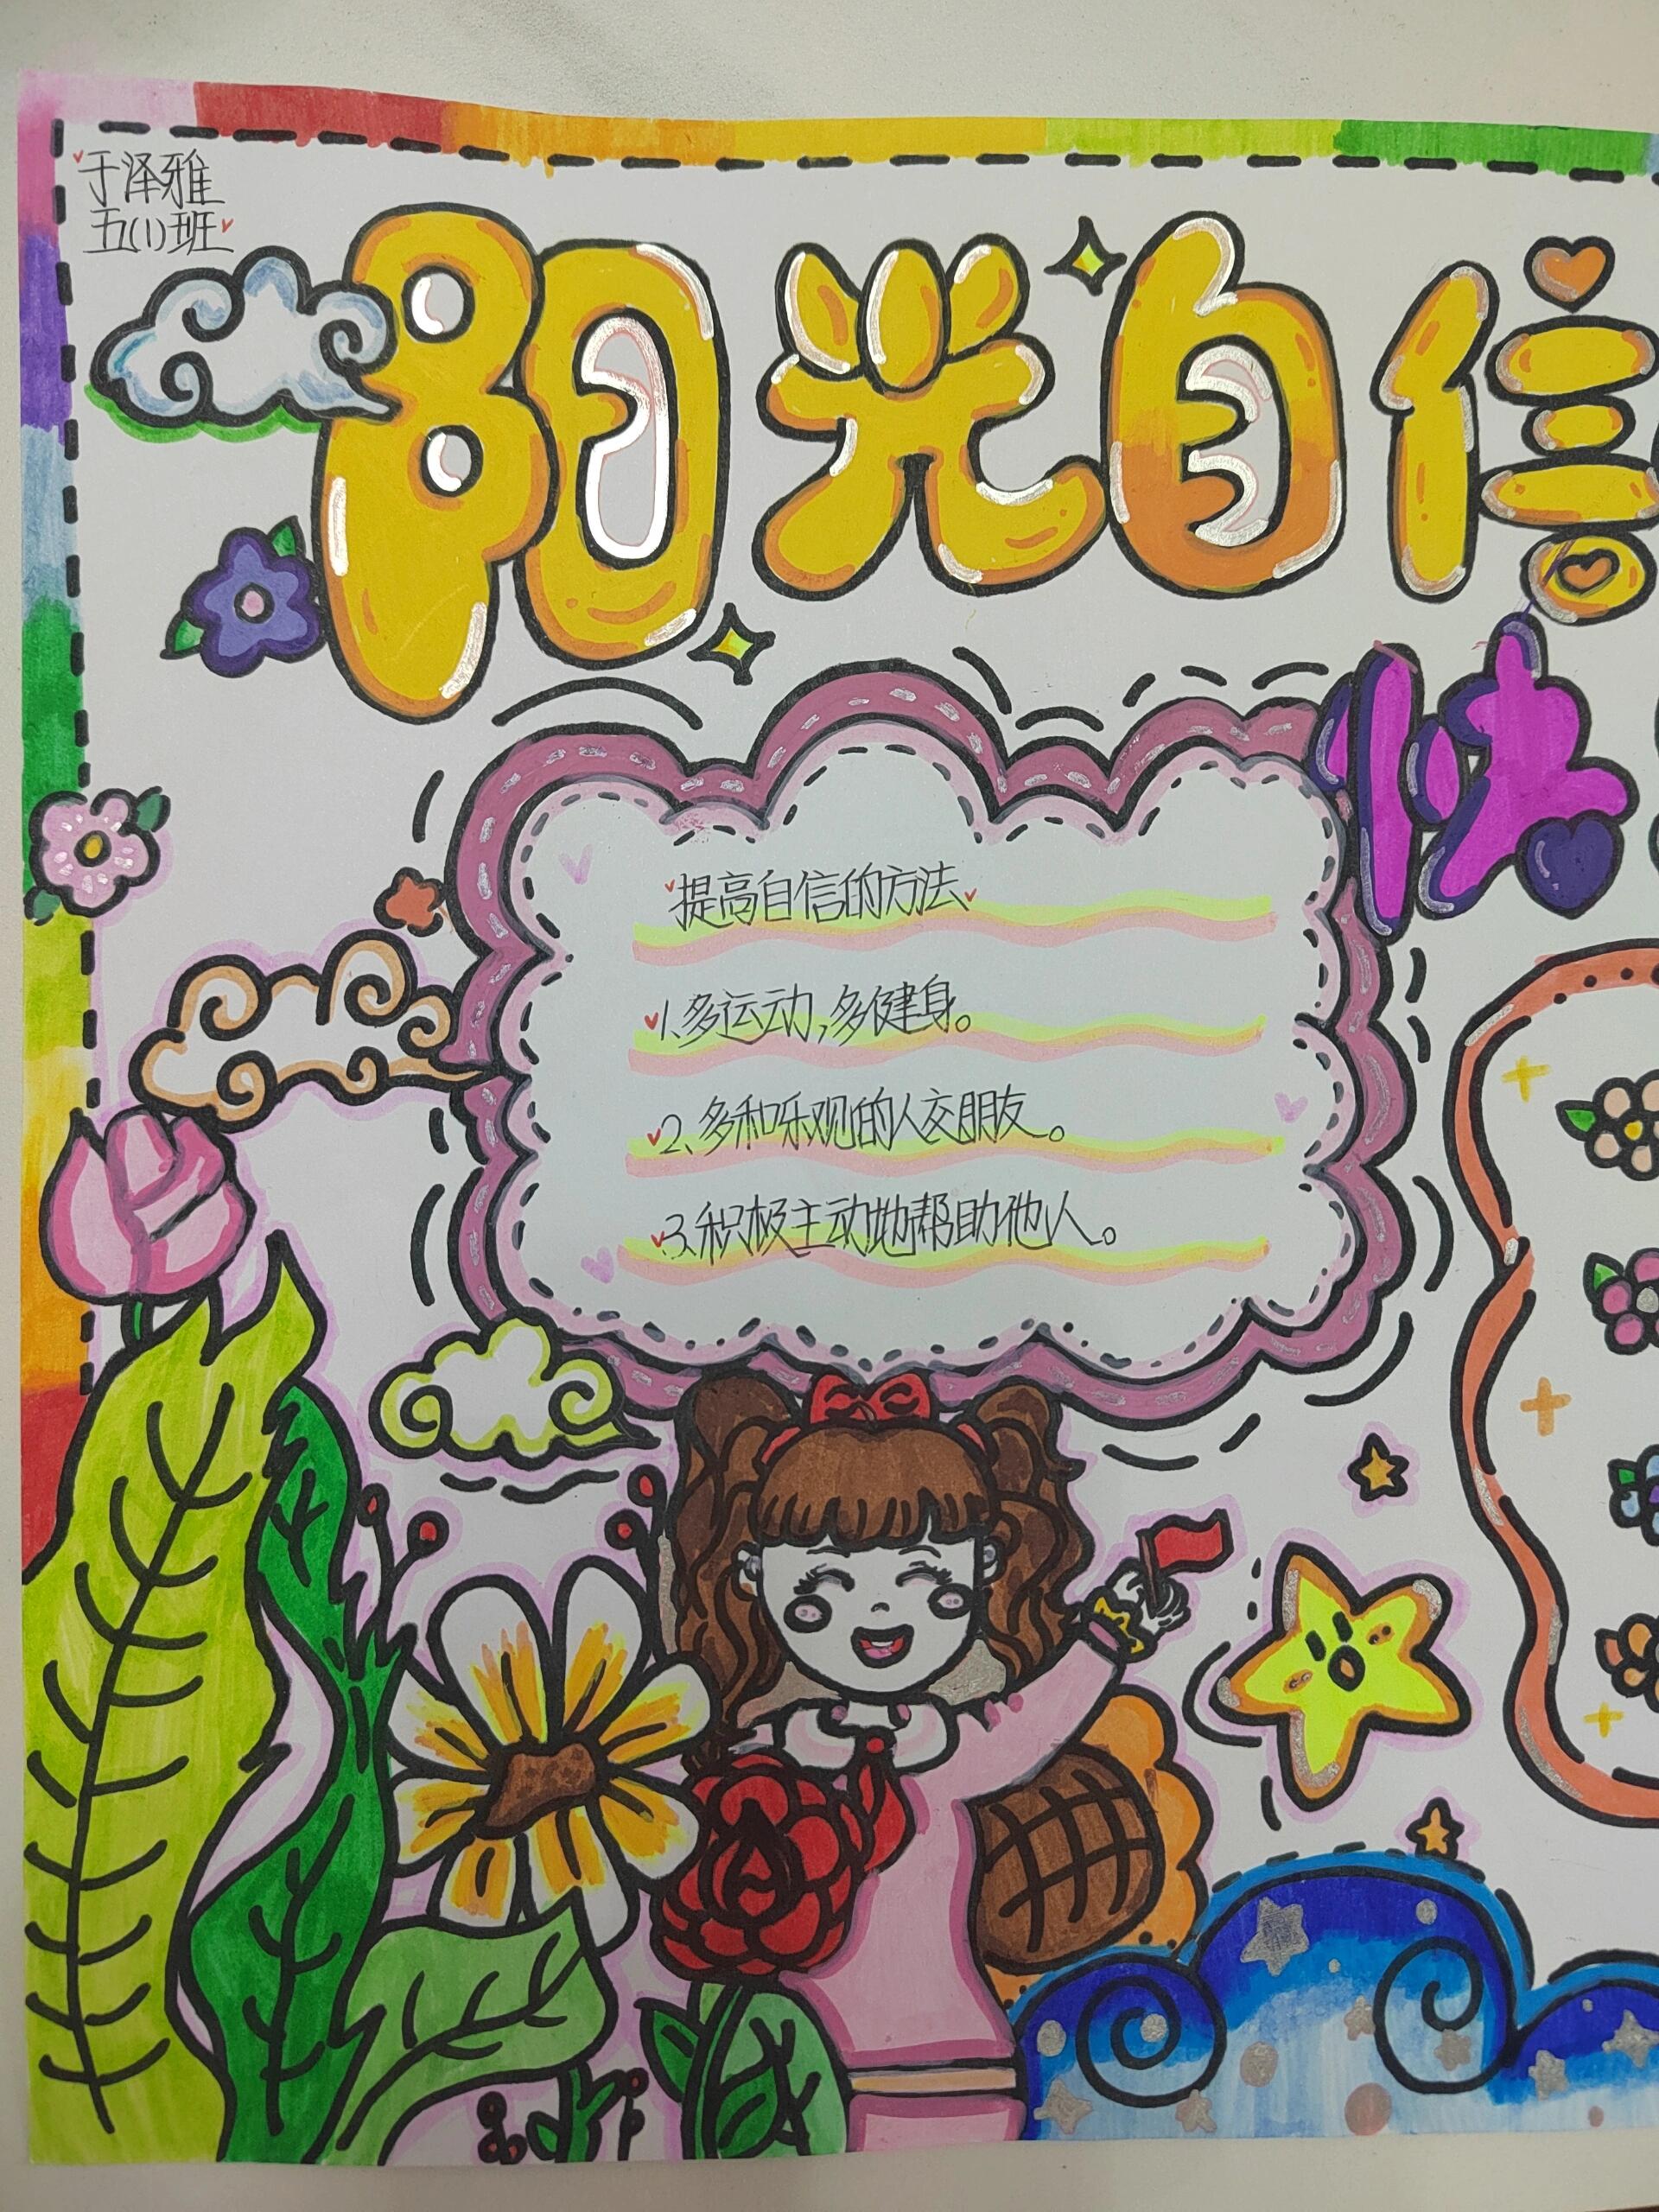 于泽雅
五(1)班
阳光自信
快
提高自信的方法
1、多运动,多健身。
2、多和乐观的人交朋友。
3、积极主动地帮助他人。